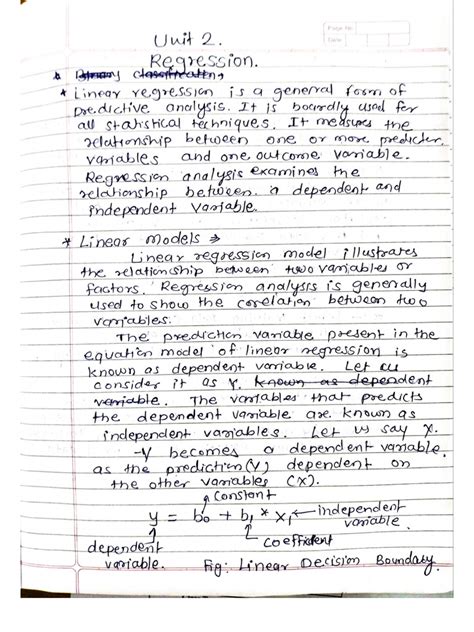 Page No.
Date
Unit 2.
Regression.
Binary classification,
* Linear regression is a general form of
predictive analysis. It is boardly used for
all statistical techniques. It measures the
relationship between one or more predicter
variables and one outcome variable.
Regression analysis examines the
relationship between a dependent and
independent variable.
* Linear models ⇒
Linear regression model illustrates
the relationship between two variables or
factors. Regression analysis is generally
used to show the corelation between two
variables.
The prediction variable present in the
equation model of linear regression is
known as dependent variable. Let us
consider it as Y. known as dependent
variable. The variables that predicts
the dependent variable are known as
independent variables. Let us say X.
-Y becomes a dependent variable
as the prediction (Y) dependent on
the other variables (X).
constant
y = b₀ + b₁ * x₁ ← independent
variable
dependent
variable.
coefficient
Fig: Linear Decision Boundary.